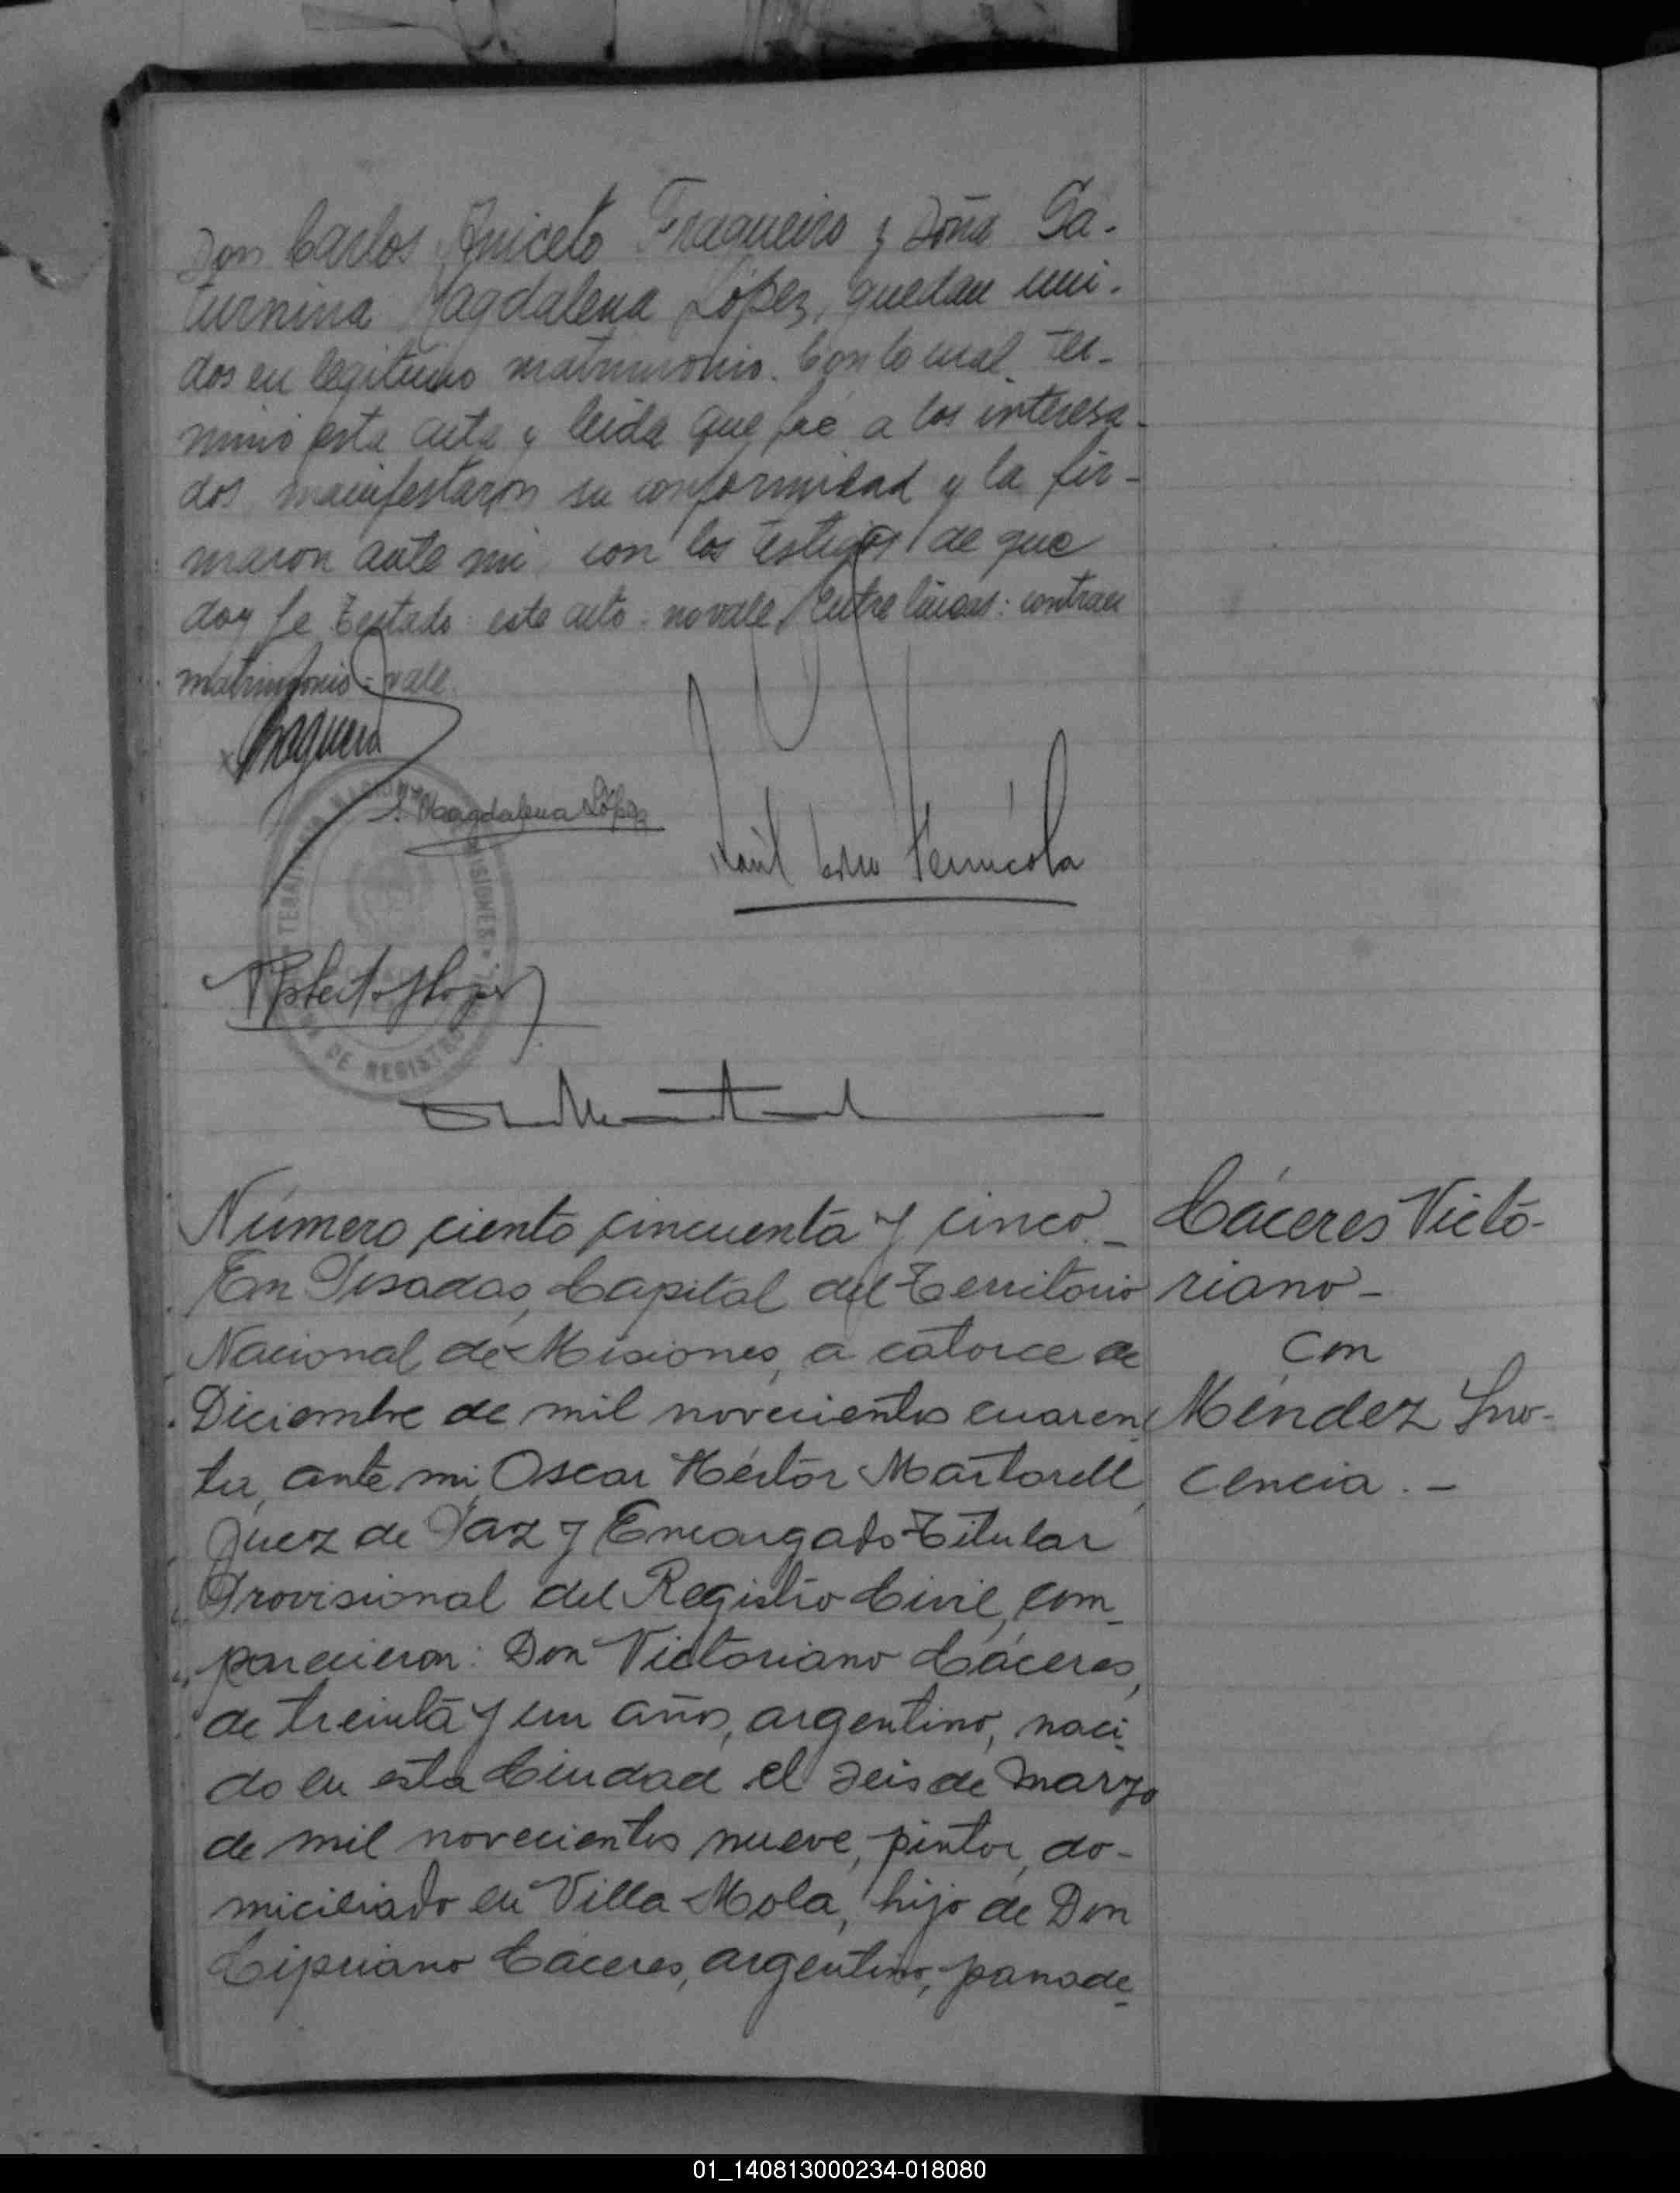 Don Carlos Aniceto Fragueiro y Doña Sa-
turnina Magdalena López, quedan uni-
dos en legitimo matrimonio. Con lo cual ter-
minó esta acta y leida que fué a los interesa-
dos manifestaron su conformidad y la fir-
maron ante mi con los testigos de que
doy fe Testado: este acto - no vale. Entre lineas: contraer
matrimonio - vale.
S. Magdalena López
TERRITORIO NACIONAL MISIONES
DE REGISTRO
Número ciento cincuenta y cinco. -
En Posadas, Capital del Territorio
Nacional de Misiones, a catorce de
Diciembre de mil novecientos cuaren-
ta, ante mi Oscar Héctor Martorell,
Juez de Paz y Encargado Titular
Provisional del Registro Civil, com-
parecieron: Don Victoriano Cáceres,
de treinta y un años, argentino, naci-
do en esta Ciudad el seis de marzo
de mil novecientos nueve, pintor, do-
miciliado en Villa Mola, hijo de Don
Cipriano Cáceres, argentino, panade-
Cáceres Victo-
riano -
con
Méndez Ino-
cencia. -
01_140813000234-018080